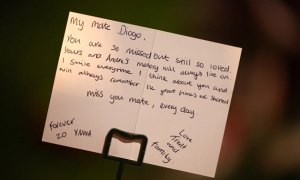 My mate Diogo,
You are so missed but still so loved
Yours and Andre's memory will always live on
I smile everytime I think about you and
will always remember the great times we shared
miss you mate, every day
Love
Trent
and
family
forever
20 YNWA